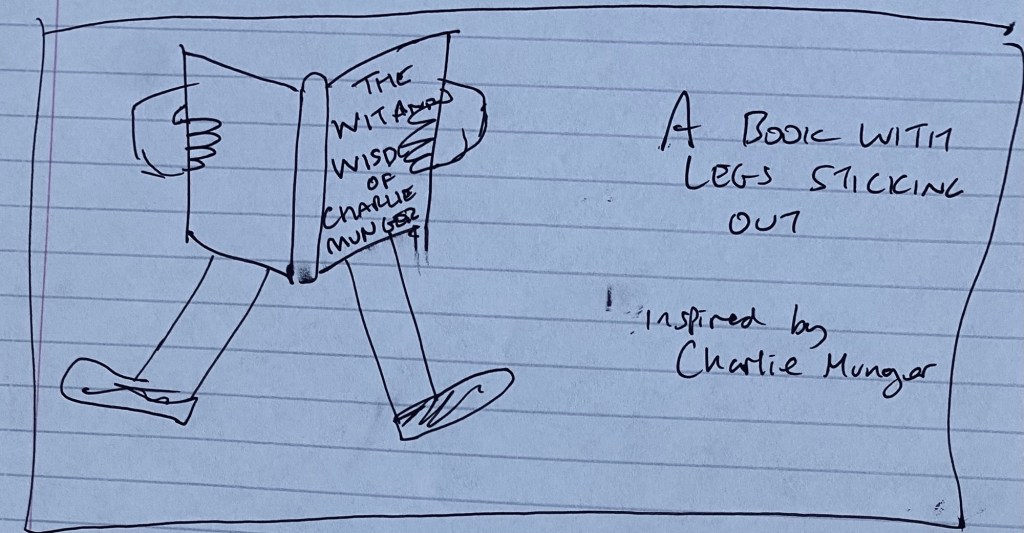 THE
WIT AND
WISD
OF
CHARLIE
MUNGER
A BOOK WITH
LEGS STICKING
OUT
inspired by
Charlie Munger